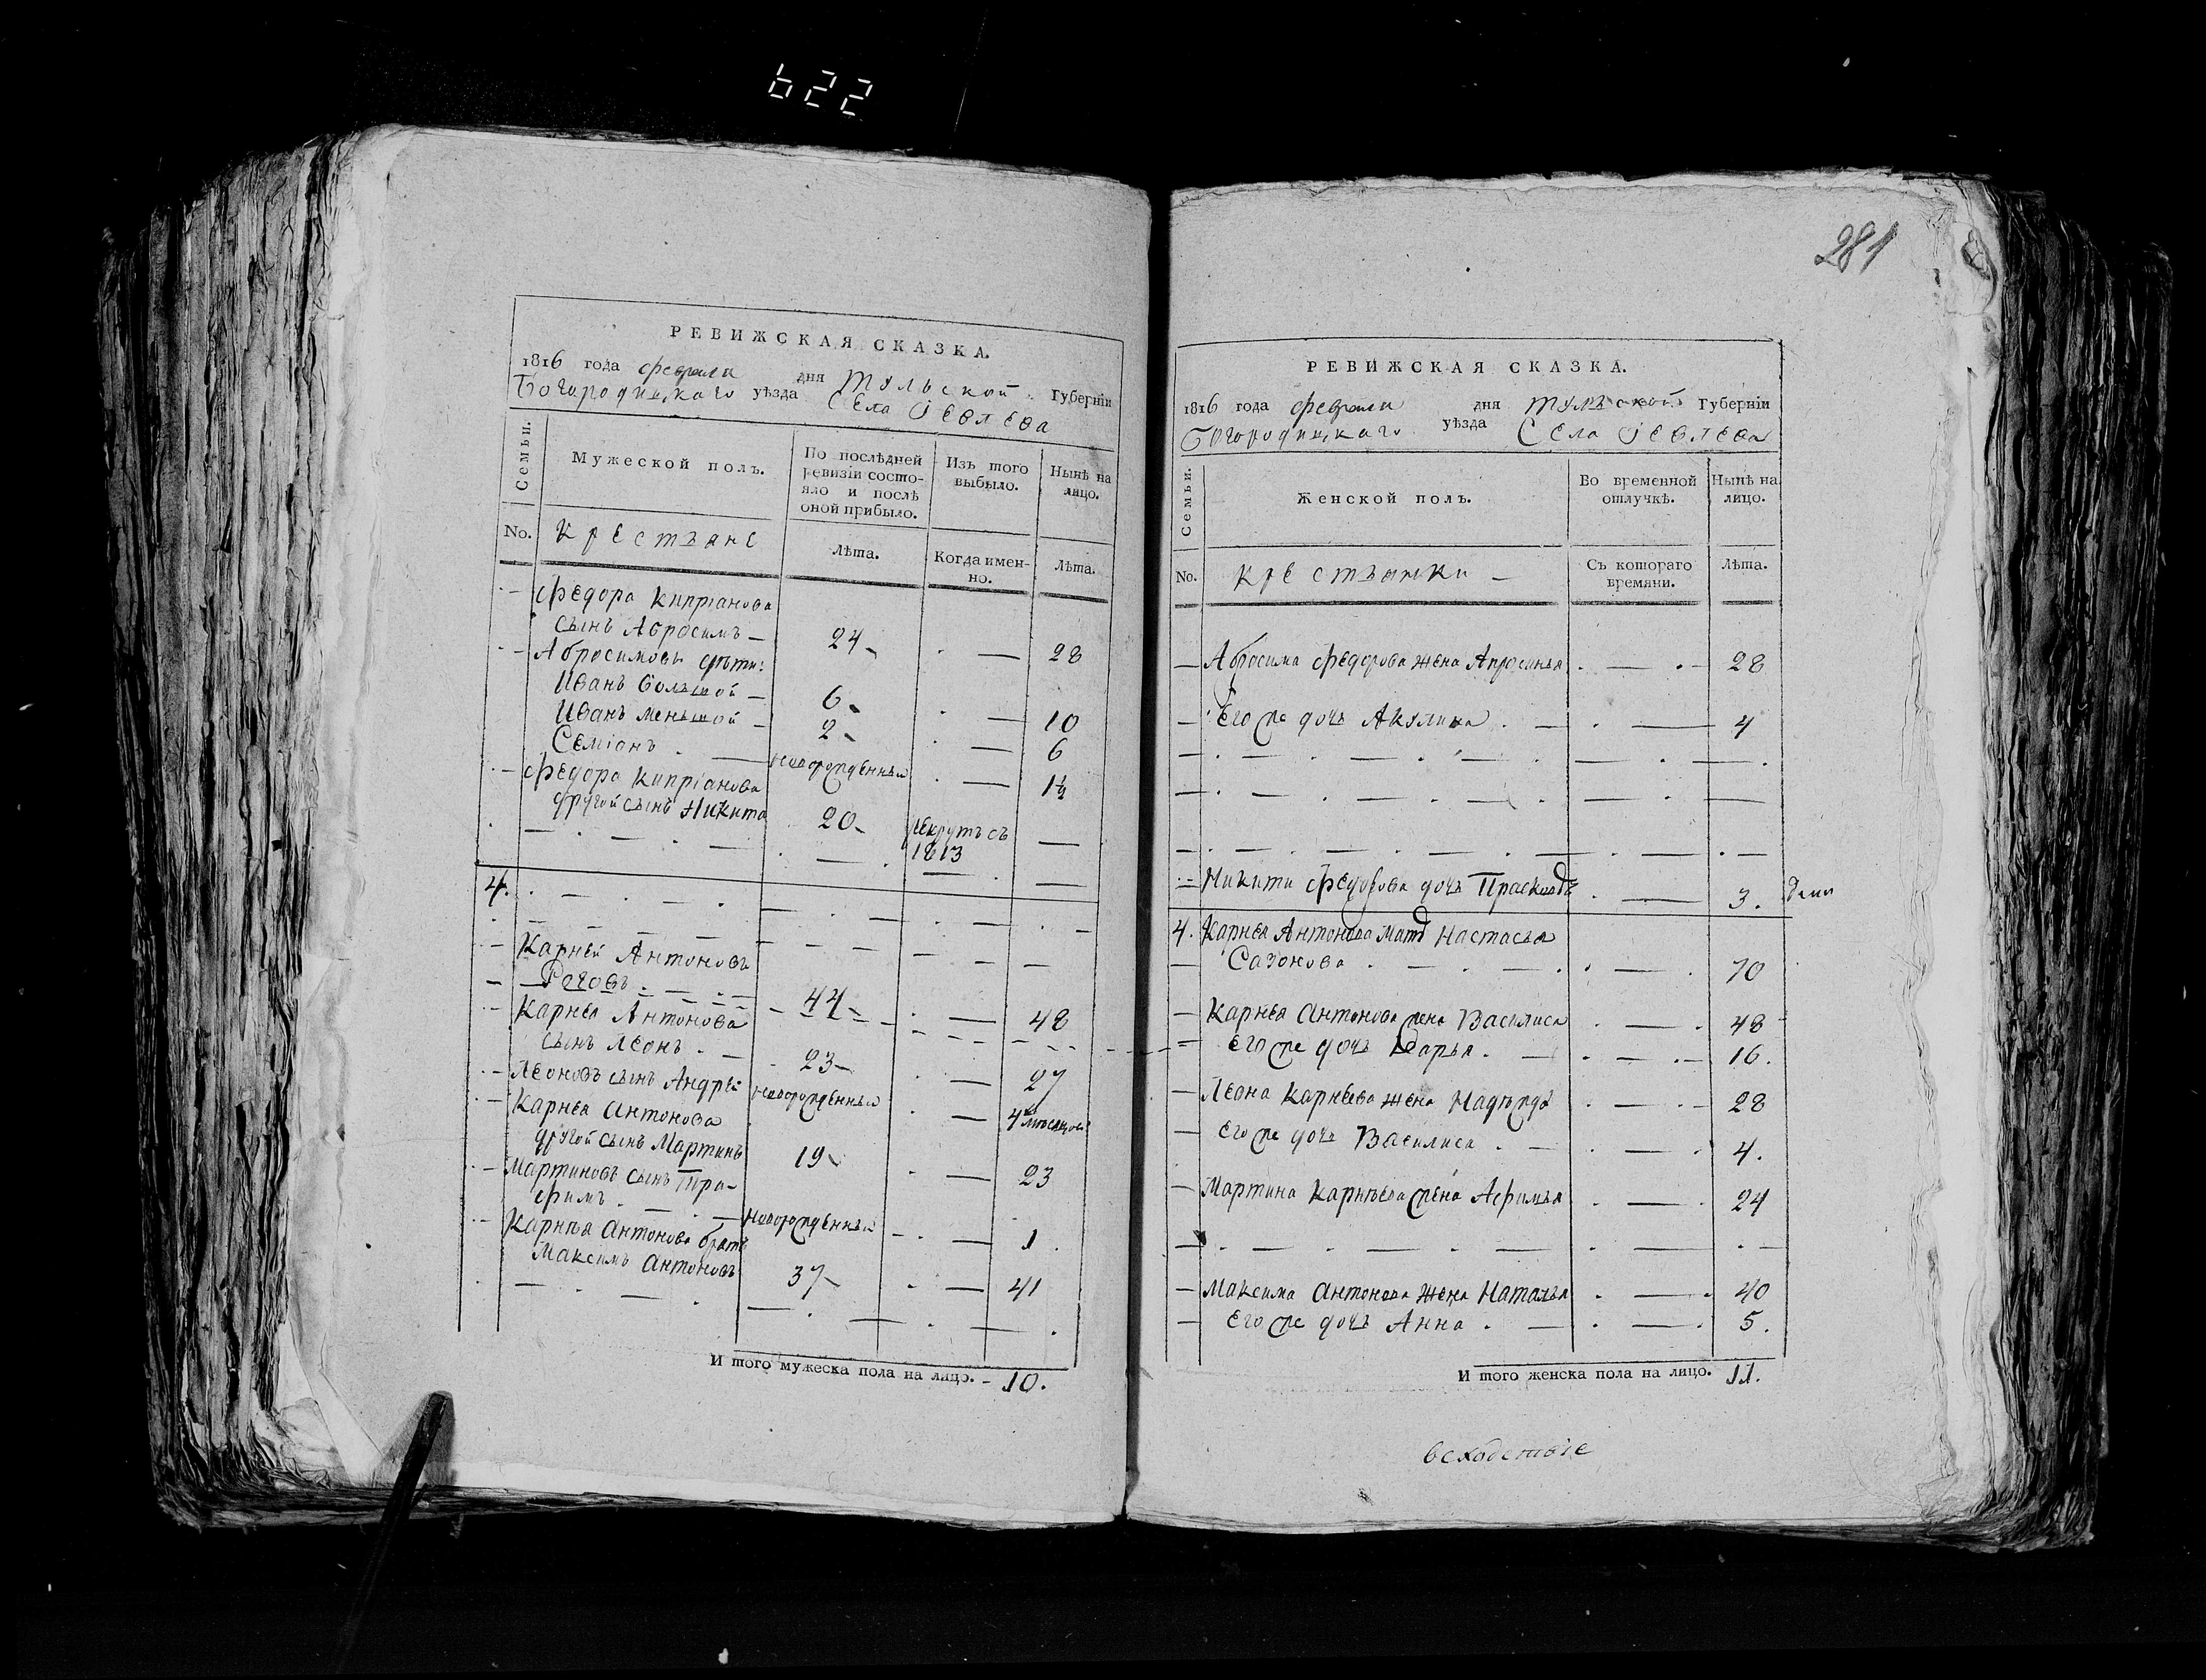 622
281
РЕВИЖСКАЯ СКАЗКА.
1816 года февраля дня Тульской Губерніи
Богородицкаго уѣзда Села Іевлева
Семьи.
Мужеской полъ.
По послѣдней ревизіи состояло и послѣ оной прибыло.
Изъ того выбыло.
Нынѣ на лицо.
No.
Крестьяне
Лѣта.
Когда именно.
Лѣта.
Федора Кипріанова
сынъ Абросимъ 24 28
Абросимовы дѣти:
Иванъ большой 6 10
Иванъ меньшой 2 6
Семіонъ новорожденный 1½
Федора Кипріанова
другой сынъ Никита 20 рекрутъ съ 1813
4.
Карнѣй Антоновъ
Роговъ 44 48
Карнѣя Антонова
сынъ Леонъ 23 27
Леоновъ сынъ Андрѣй новорожденный 4 мѣсяцов
Карнѣя Антонова
другой сынъ Мартинъ 19 23
Мартиновъ сынъ Тра-
фимъ новорожденный 1
Карнѣя Антонова братъ
Максимъ Антоновъ 37 41
И того мужеска пола на лицо. 10.
РЕВИЖСКАЯ СКАЗКА.
1816 года февраля дня Тульской Губерніи
Богородицкаго уѣзда Села Іевлева
Семьи.
Женской полъ.
Во временной отлучкѣ.
Нынѣ на лицо.
No.
Крестьянки
Съ котораго времяни.
Лѣта.
Абросима Федорова жена Апросинья 28
Его же дочь Акулина 4
Никиты Федорова дочь Прасковья 3.
4. Карнѣя Антонова мать Настасья
Сазонова 70
Карнѣя Антонова жена Василиса 48
Его же дочь Дарья 16.
Леона Карнѣева жена Надежда 28
Его же дочь Василиса 4.
Мартина Карнѣева жена Афимья 24
Максима Антонова жена Наталья 40
Его же дочь Анна 5.
И того женска пола на лицо. 11.